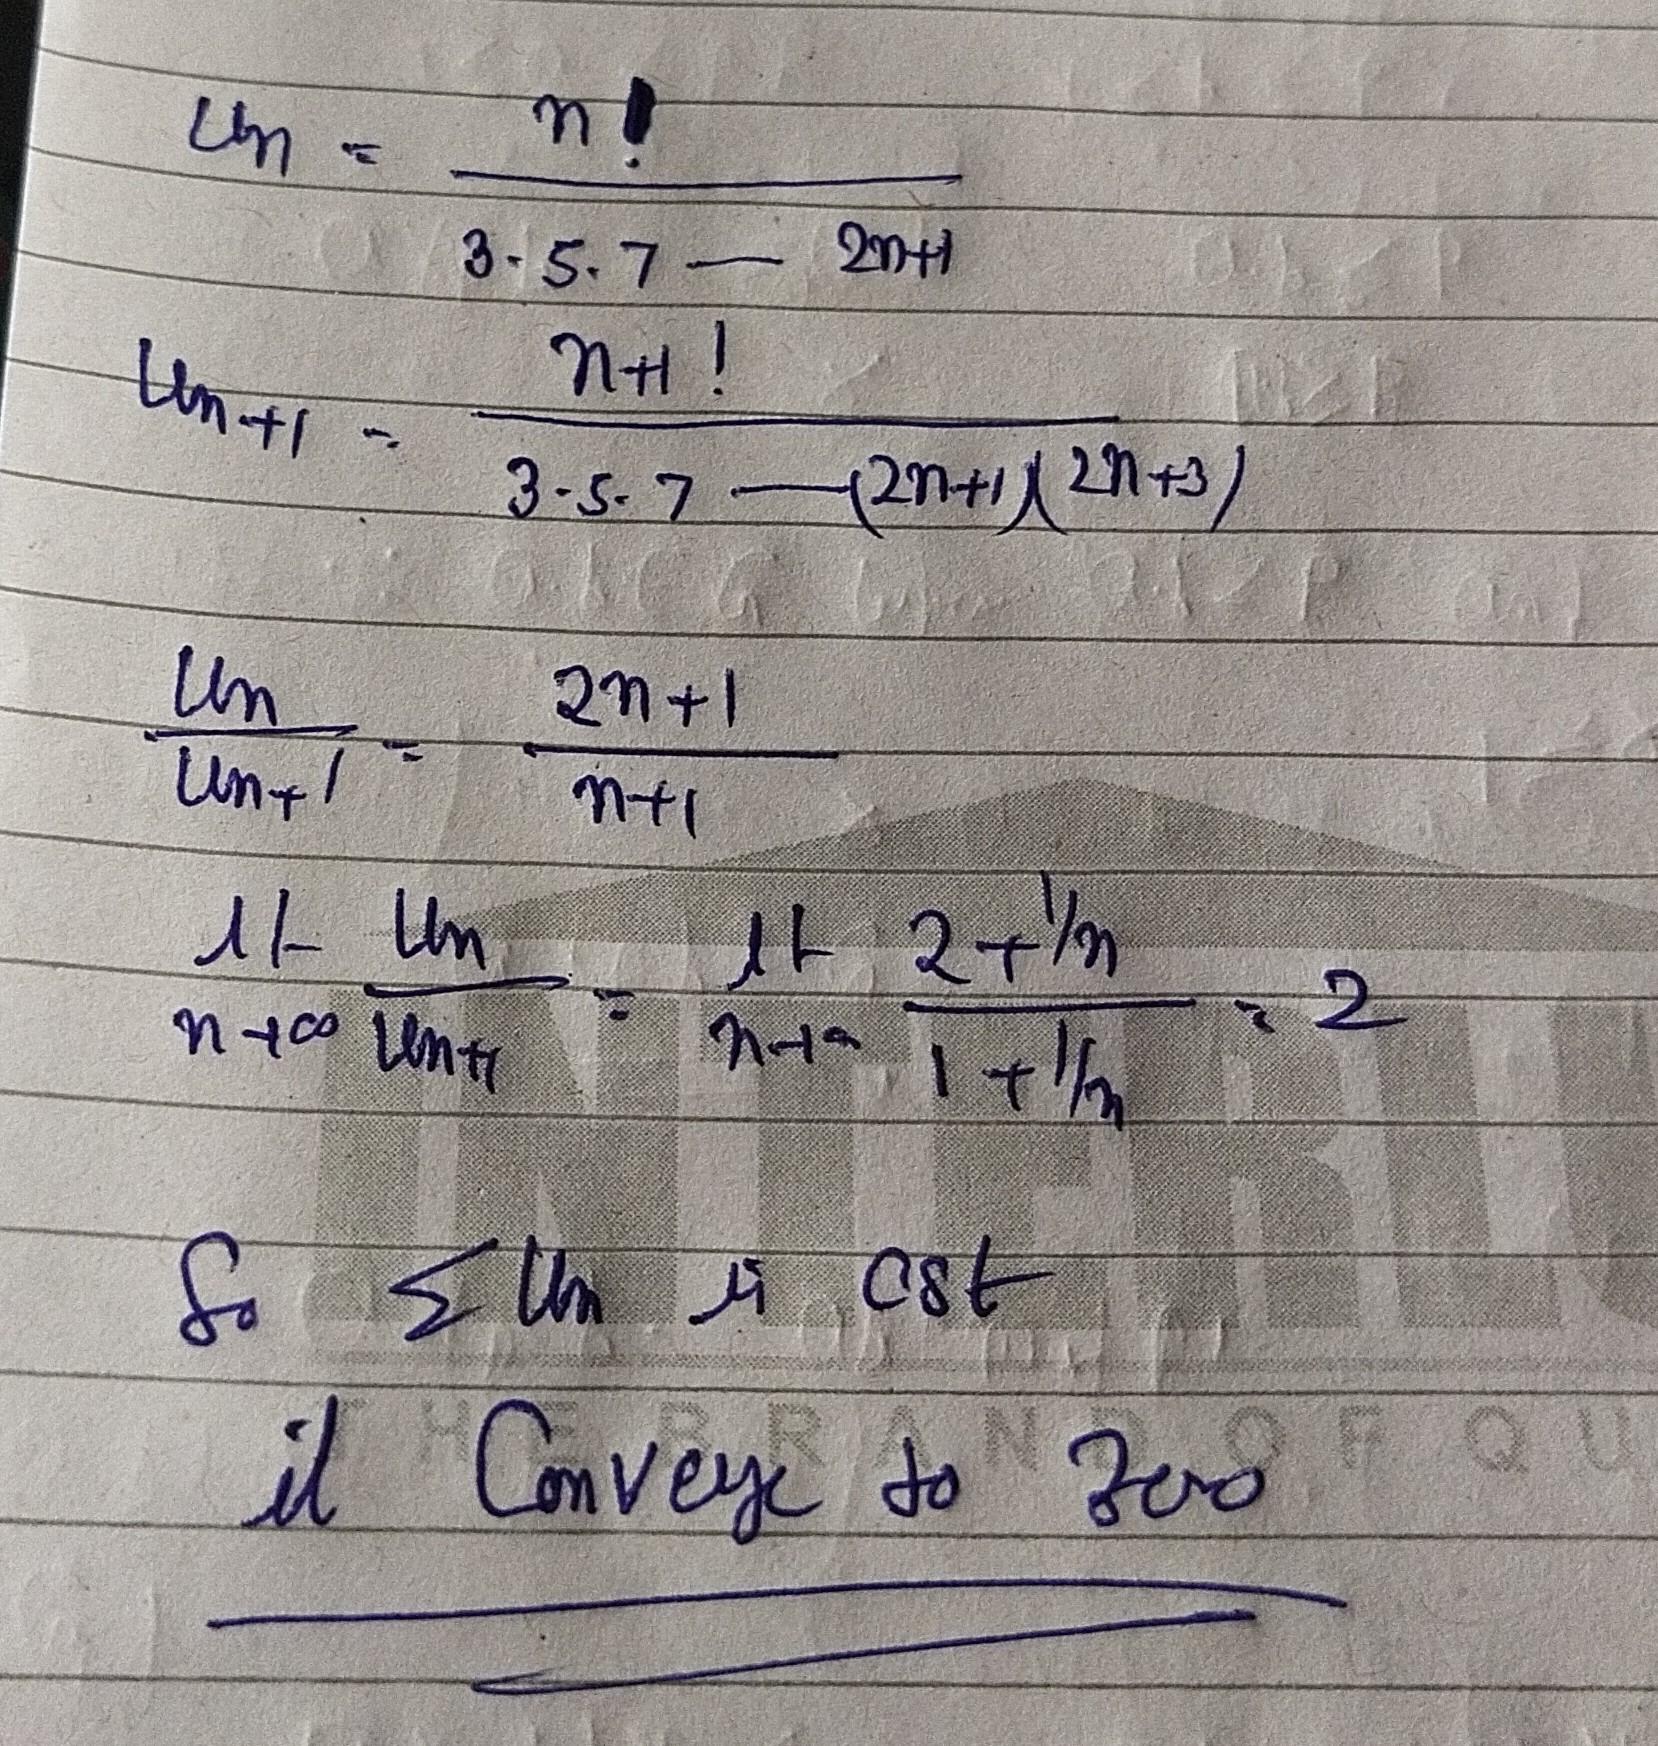 Un = n! / 3.5.7 — 2n+1
Un+1 = n+1! / 3.5.7 — (2n+1)(2n+3)
Un / Un+1 = 2n+1 / n+1
lt n→∞ Un / Un+1 = lt n→∞ 2+1/n / 1+1/n = 2
So Σ Un is cgt
it Converge to Zero
THE BRAND OF QU